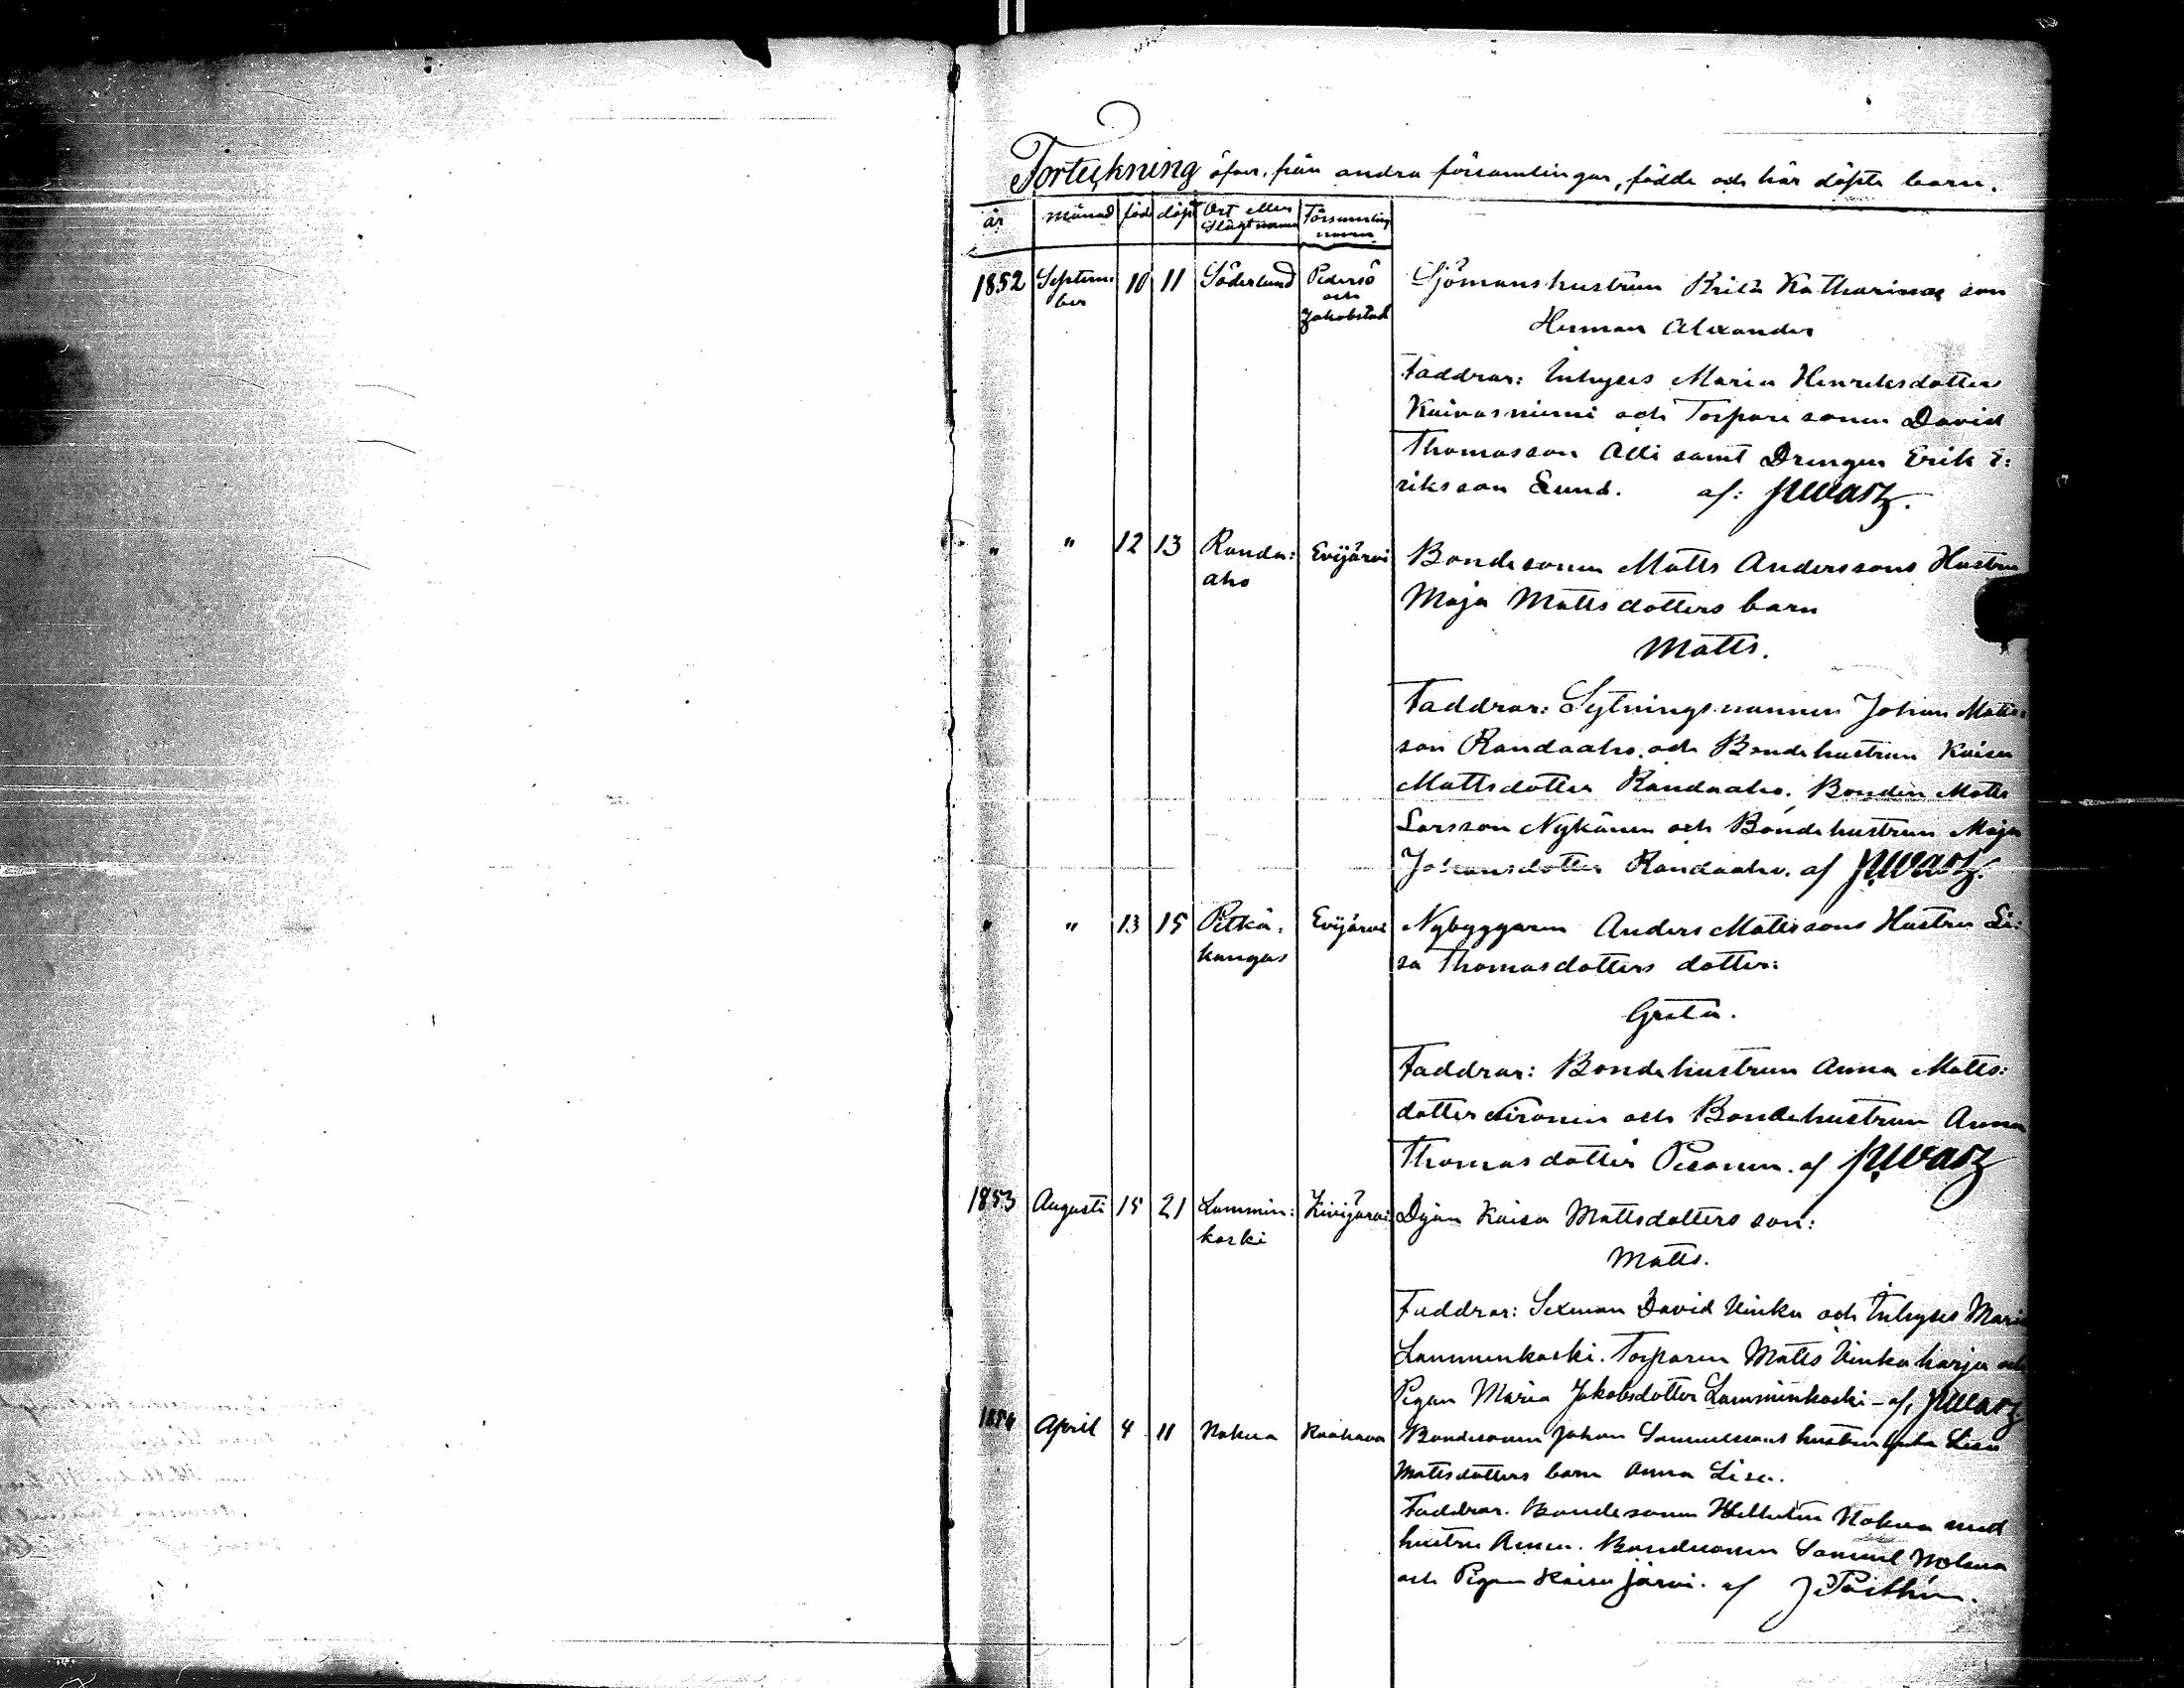 Förteckning öfver, från andra församlingar, födde och här döpte barn.
år månad född döpt Ort eller Slägtnamn Församlings namn
1852 Septem: 10 11 Söderlund Pedersö Sjömanshustrun Brita Katharinas son
ber och
Jakobstad Herman Alexander
Faddrar: Inhyses Maria Henriksdotter
Kaivosniemi och Torparesonen David
Thomasson Alli samt Drengen Erik E:
riksson Lund. af:
" " 12 13 Randa: Evijärvi Bondesonen Matts Anderssons Hustru
aho Maja Mattsdotters barn
Matts.
Faddrar: Sytningsmannen Johan Matts:
son Randaaho och Bondehustrun Kaisa
Mattsdotter Randaaho. Bonden Matts
Larsson Nykänen och Bondehustrun Maja
Johansdotter Randaaho. af
" " 13 15 Pitkä: Evijärvi Nybyggaren Anders Mattssons Hustru Li:
kangas sa Thomasdotters dotter:
Greta.
Faddrar: Bondehustrun Anna Matts:
dotter och Bondehustrun Anna
Thomasdotter Pesonen. af
1853 Augusti 15 21 Lammin: Kivijärvi Pigan Kaisa Mattsdotters son:
koski
Matts.
Faddrar: Sexman David Vinka och Inhyses Maria
Lamminkoski. Torparen Matts Vinkaharju och
Pigan Maria Jakobsdotter Lamminkoski - af,
1854 April 4 11 Nakua Kauhava Bondesonen Johan Samuelssons hustru Greta Lisa
Mattsdotters barn Anna Lisa.
Faddrar. Bondesonen Wilhelm Nakua med
hustru Anna. Bondesonen Samuel
och Pigan Kaisa Järvi. af